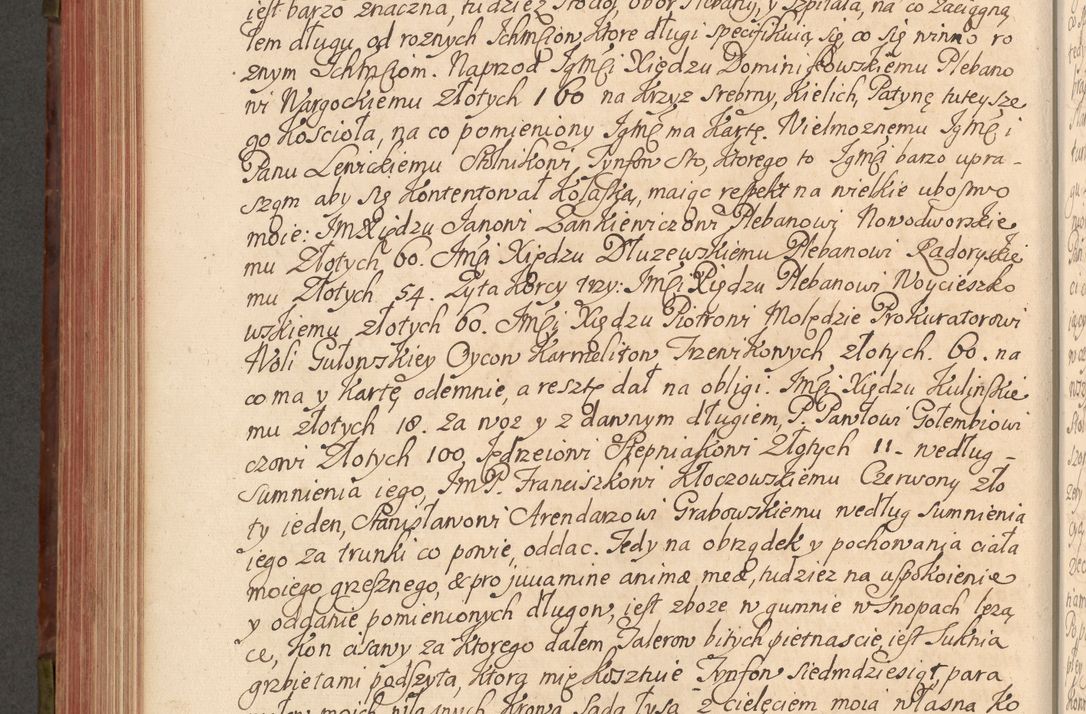 jest barzo znaczna, tudziesz stodoł, obor Plebany, y Szpitala, na co zaciągną
łem długu, od roznych Ichmciow, ktore długi specifikuią się co się winno ro
znym Ichmciom. Naprzod Jgmci Xiędzu Dominikowskiemu Plebano
wi Wargockiemu Złotych 160 na Krzyz srebrny, Kielich, Patynę tuteysze
go Koscioła, na co pomieniony Jgmć ma Kartę. Wielmoznemu Jgmci
Panu Lewickiemu Stolnikowi, Tynfow sto, ktorego to Jgmci barzo upra-
szam aby się kontentował Kolaską, maiąc respekt na wielkie ubostwo
moie: Jm Xiędzu Janowi Zankiewiczowi Plebanowi Nowodworskie
mu Złotych 60. Jmci Xiędzu Dłuzewskiemu Plebanowi Radoryskie
mu Złotych 54. Zyta Korcy trzy: Jmci Xiędzu Plebanowi Woycieszko
wskiemu złotych 60. Jmci Xiędzu Piotrowi Molędzie Prokuratorowi
Woli Gułowskiey Oycow Karmelitow Trzewikowych złotych. 60. na
co ma y Kartę odemnie, a resztę dał na obligi. Jmci Xiędzu Kulinskie
mu złotych 18. za woz y z dawnym długiem, P. Pawłowi Gołembiowi
czowi Złotych 100, Jędrzeiowi Stepniakowi Złotych 11 - według -
sumnienia iego, Jm P. Franciszkowi Kłoczowskiemu Czerwony zło
ty ieden, Stanisławowi Arendarzowi Grabowskiemu według sumnienia
iego za trunki co powie, oddac. Tedy na obrządek y pochowania ciała
moiego grzesznego, & pro juuamine animæ meæ, tudziez na uspokoienie
y oddanie pomienionych długow, iest zboze w gumnie w snopach lezą
ce, Kon cisawy za ktorego dałem Talerow bitych piętnascie, iest Suknia
grzbietami podszyta, ktora mię kosztuie Tynfow siedmdziesiąt, para
moich własnych, Krowa Sada łysa z cielęciem moia własna Ko